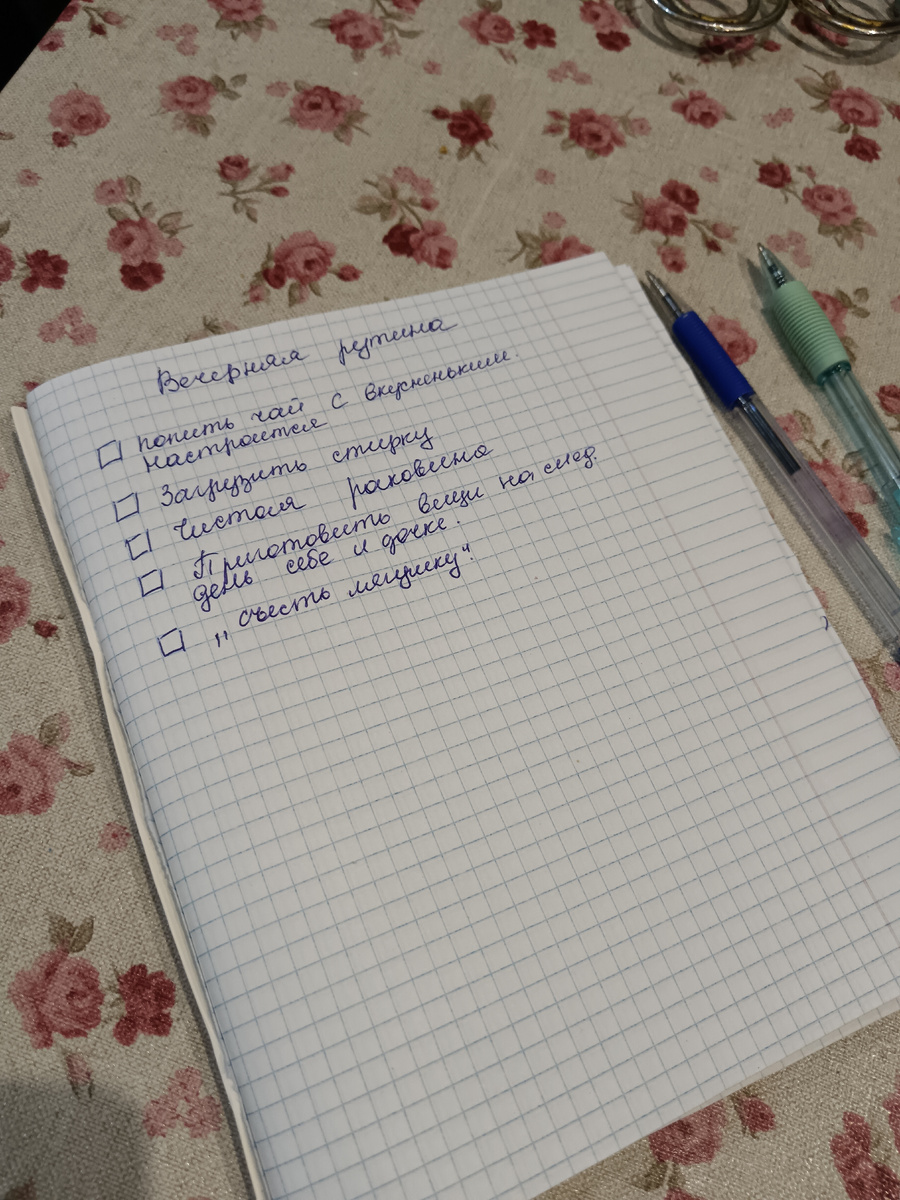 Вечерняя рутина
попить чай с вкусненьким.
настроится
Загрузить стирку
Чистая раковина
Приготовить вещи на след.
день себе и дочке.
„съесть лягушку“